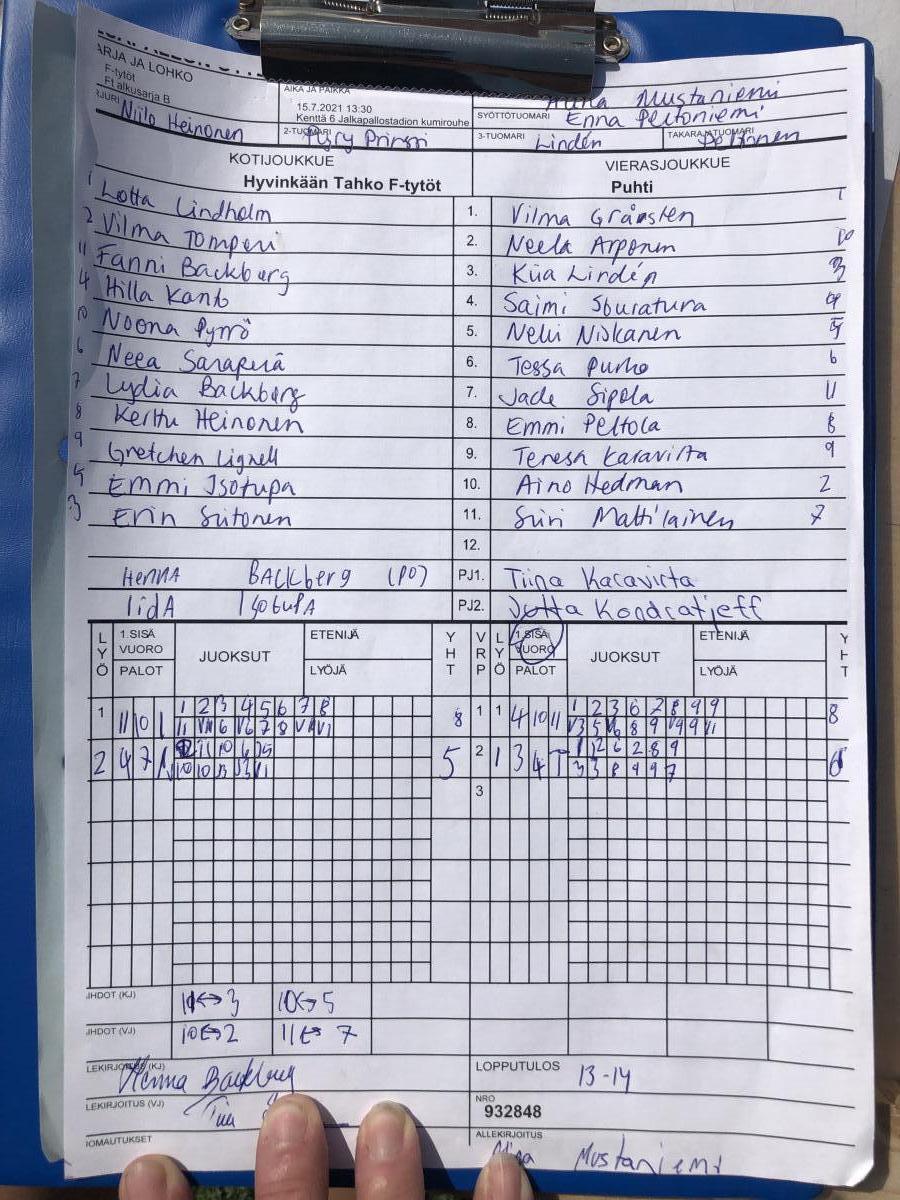 ARJA JA LOHKO
F-tytöt
Ft alkusarja B
Niilo Heinonen
AIKA JA PAIKKA
15.7.2021 13:30
Kenttä 6 Jalkapallostadion kumirouhe
2-TUOMARI Pyry Prinssi
Mustaniemi
SYÖTTÖTUOMARI Enna Peltoniemi
3-TUOMARI Lindén TAKARAJATUOMARI Peltonen
KOTIJOUKKUE VIERASJOUKKUE
Hyvinkään Tahko F-tytöt Puhti
1 Lotta Lindholm 1. Vilma Gränsten 1
2 Vilma Tomperi 2. Neela Arponen 10
11 Fanni Backberg 3. Kiia Lindén 3
4 Hilla Kanto 4. Saimi 4
10 Noona Pyrrö 5. Nelli Niskanen 5
6 Neea Saraperä 6. Tessa Purho 6
7 Lydia Backberg 7. Jade Sipola 11
8 Kerttu Heinonen 8. Emmi Peltola 8
9 Gretchen Lignell 9. Teresa Karavirta 9
5 Emmi Isotupa 10. Aino Hedman 2
3 Erin Siitonen 11. Siiri Mattilainen 7
12.
HENNA BACKberg (PO) PJ1. Tiina Karavirta
IidA IsotupA PJ2. Jutta Kondratjeff
LYÖ 1.SISÄ VUORO PALOT JUOKSUT ETENIJÄ LYÖJÄ YHT VRP LYÖ 1.SISÄ VUORO PALOT JUOKSUT ETENIJÄ LYÖJÄ YHT
1 11 10 1 1 2 3 4 5 6 7 8 8 1 1 4 10 11 1 2 3 6 7 8 9 9 8
2 4 7 5 2 1 3 4 1 2 6 2 8 9 6
3 3 8 9 9 7
3
IHDOT (KJ) 10↔3 10↔5
IHDOT (VJ) 10↔2 11↔7
LEKIRJOITUS (KJ) Henna Backberg LOPPUTULOS 13-14
LEKIRJOITUS (VJ) NRO
932848
IOMAUTUKSET ALLEKIRJOITUS
Mustaniemi